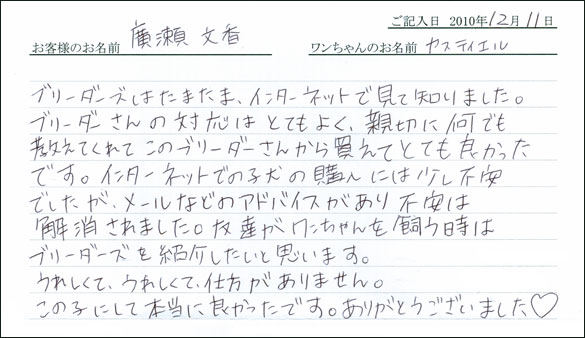 ご記入日 2010年12月11日
お客様のお名前 廣瀬 文香 ワンちゃんのお名前 カスティエル
ブリーダーズはたまたま、インターネットで見て知りました。
ブリーダーさんの対応はとてもよく、親切に何でも
教えてくれてこのブリーダーさんから買えてとても良かった
です。インターネットでの子犬の購入には少し不安
でしたが、メールなどのアドバイスがあり不安は
解消されました。友達がワンちゃんを飼う時は
ブリーダーズを紹介したいと思います。
うれしくて、うれしくて、仕方がありません。
この子にして本当に良かったです。ありがとうございました♡